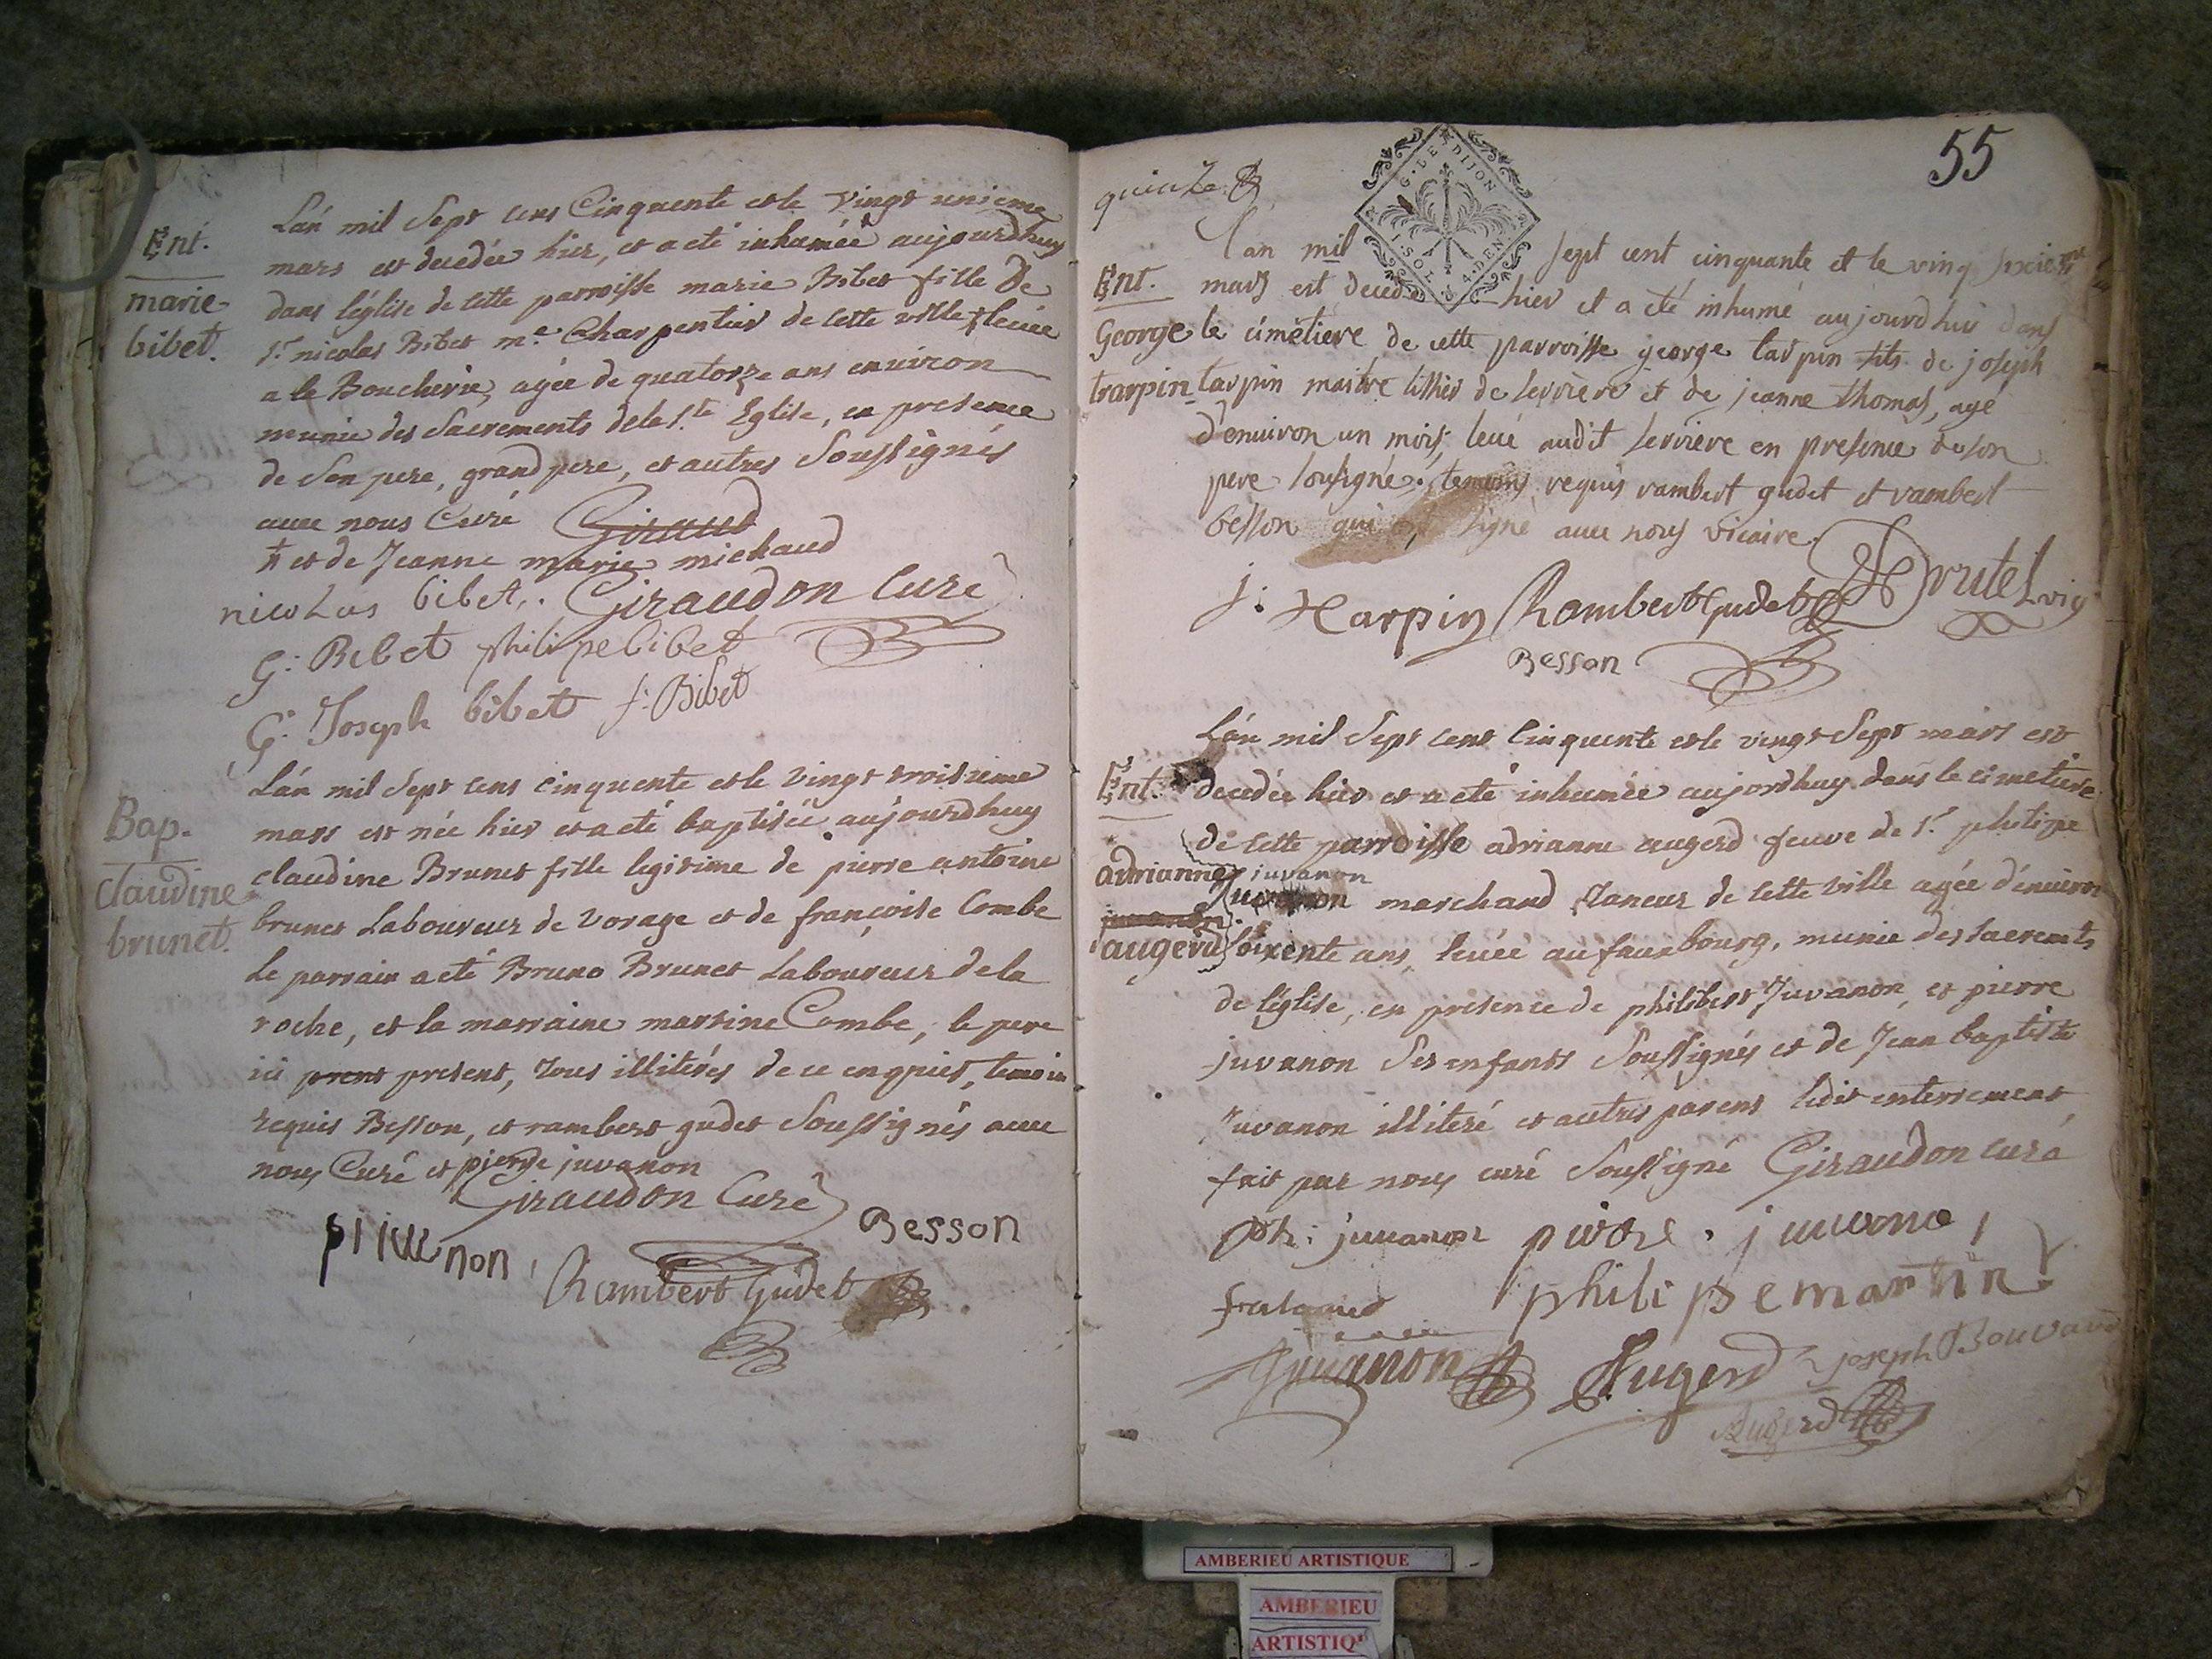 Ent.
marie
bibet.
L'an mil Sept cens Cinquente et le vingt unieme
mars est decedée hier, et a eté inhumée aujourdhuy
dans l'église de cette parroisse marie Bibet fille De
Sr nicolas Bibet me Charpentier de cette ville levée
a la Boucherie, agée de quatorze ans environ
munie des Sacrements dela Ste Eglise, en presence
de Son pere, grand pere, et autres Soussignés
avec nous Curé Giraud
et de Jeanne marie michaud
nicolas bibet. Giraudon Curé
G: Bibet philipe bibet
G: Joseph bibet f: Bibet
Bap.
claudine
brunet.
L'an mil Sept cens cinquente et le vingt troisieme
mars est née hier et a eté baptisée aujourdhuy
claudine Brunet fille legitime de pierre antoine
brunet Laboureur de vorage et de françoise Combe
Le parrain a eté Bruno Brunet Laboureur de la
roche, et la marraine martine Combe, le pere
ici prent present, tous illiterés de ce enquis, temoin
requis Besson, et rambert gudet Soussignés avec
nous Curé et pierre juvanon
Giraudon Curé
Besson
Rambert Gudet
55
quinze
G. DE DIJON
1. SOL. 4. DEN.
Ent.
George
tarpin
l'an mil sept cent cinquante et le vingt sixieme
mars est decedé hier et a eté inhumé aujourdhui dans
le cimetiere de cette parroisse george tarpin fils de joseph
tarpin maitre tissier de serriere et de jeanne thomas, agé
d'environ un mois, levé audit serriere en presence de son
pere sousigné, temoins requis rambert gudet et rambert
besson qui ont signé avec nous vicaire.
j: tarpin Rambert Gudet Brutel vic
Besson
Ent.
adrianne
juvanon
augerd
L'an mil Sept cent Cinquente et le vingt Sept mars est
decedée hier et a eté inhumée aujordhuy dans le cimetiere
de cette parroisse adrianne augerd veuve de Sr philippe
juvanon
Juvanon marchand Taneur de cette ville agée d'environ
soixente ans, levée au fauxbourg, munie des sacremts
de l'église, en presence de philibert Juvanon, et pierre
juvanon Ses enfants Soussignés et de Jean baptiste
Juvanon illiteré et autres parens ledit enterrement
fait par nous curé Soussigné Giraudon curé
Ph: juuanon
philipe martin
Juuanon Augerd joseph Bouvard
Augerd
AMBERIEU ARTISTIQUE
AMBERIEU
ARTISTIQ